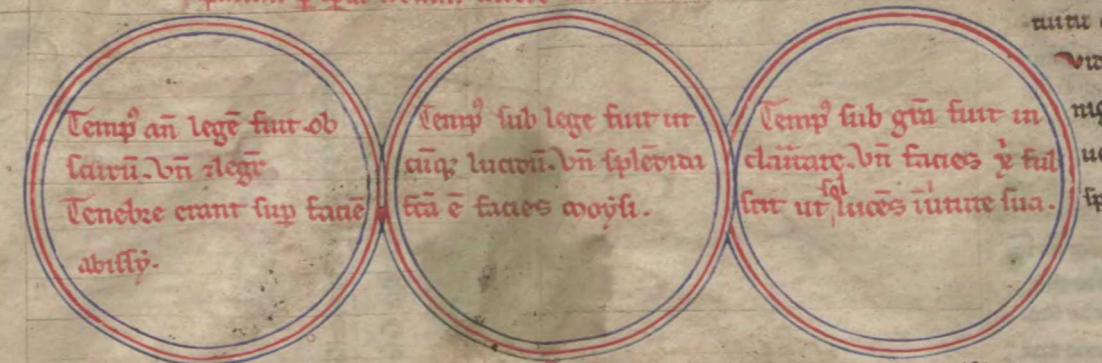 Tempꝰ an̄ legē fuit ob
scurū. Vn̄ ⁊ legr̄
Tenebre erant sup faciē
abissy.
Tempꝰ sub lege fuit ut
cūqꝫ lucidū. Vn̄ splēdida
fcā ē facies moysi.
Tempꝰ sub gr̄a fuit in
claritate. Vn̄ facies ful
sit ut sol lucēs ī uirtute sua.